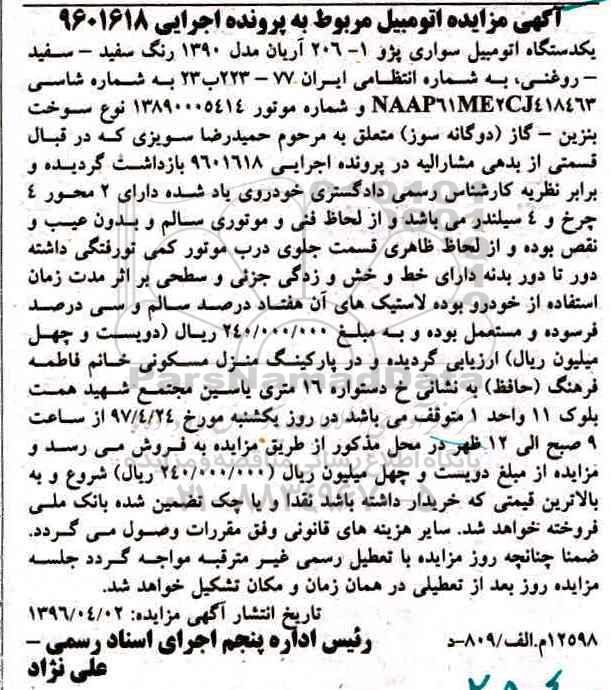 آگهی مزایده اتومبیل مربوط به پرونده اجرایی ۹۶۰۱۶۱۸
یکدستگاه اتومبیل سواری پژو ۱- ۲۰۶ آریان مدل ۱۳۹۰ رنگ سفید – سفید
– روغنی، به شماره انتظامی ایران ۷۷ – ۲۲۳ب۲۳ به شماره شاسی
NAAP۶۱ME۲CJ۴۱۸۴۶۳ و شماره موتور ۱۳۸۹۰۰۰۵۴۱۴ نوع سوخت
بنزین – گاز (دوگانه سوز) متعلق به مرحوم حمیدرضا سویزی که در قبال
قسمتی از بدهی مشارالیه در پرونده اجرایی ۹۶۰۱۶۱۸ بازداشت گردیده و
برابر نظریه کارشناس رسمی دادگستری خودروی یاد شده دارای ۲ محور ۴
چرخ و ۴ سیلندر می باشد و از لحاظ فنی و موتوری سالم و بدون عیب و
نقص بوده و از لحاظ ظاهری قسمت جلوی درب موتور کمی تورفتگی داشته
دور تا دور بدنه دارای خط و خش و زدگی جزئی و سطحی بر اثر مدت زمان
استفاده از خودرو بوده لاستیک های آن هفتاد درصد سالم و سی درصد
فرسوده و مستعمل بوده و به مبلغ ۲۴۰/۰۰۰/۰۰۰ ریال (دویست و چهل
میلیون ریال) ارزیابی گردیده و در پارکینگ منزل مسکونی خانم فاطمه
فرهنگ (حافظ) به نشانی خ دستواره ۱۶ متری یاسین مجتمع شهید همت
بلوک ۱۱ واحد ۱ متوقف می باشد در روز یکشنبه مورخ ۹۷/۴/۲۴ از ساعت
۹ صبح الی ۱۲ ظهر در محل مذکور از طریق مزایده به فروش می رسد و
مزایده از مبلغ دویست و چهل میلیون ریال (۲۴۰/۰۰۰/۰۰۰ ریال) شروع و به
بالاترین قیمتی که خریدار داشته باشد نقدا و یا چک تضمین شده بانک ملی
فروخته خواهد شد. سایر هزینه های قانونی وفق مقررات وصول می گردد.
ضمنا چنانچه روز مزایده با تعطیل رسمی غیر مترقبه مواجه گردد جلسه
مزایده روز بعد از تعطیلی در همان زمان و مکان تشکیل خواهد شد.
تاریخ انتشار آگهی مزایده: ۱۳۹۶/۰۴/۰۲
۱۲۵۹۸م.الف/۸۰۹-د رئیس اداره پنجم اجرای اسناد رسمی –
علی نژاد
ParsNamadData
پایگاه اطلاع رسانی مناقصه و مزایده